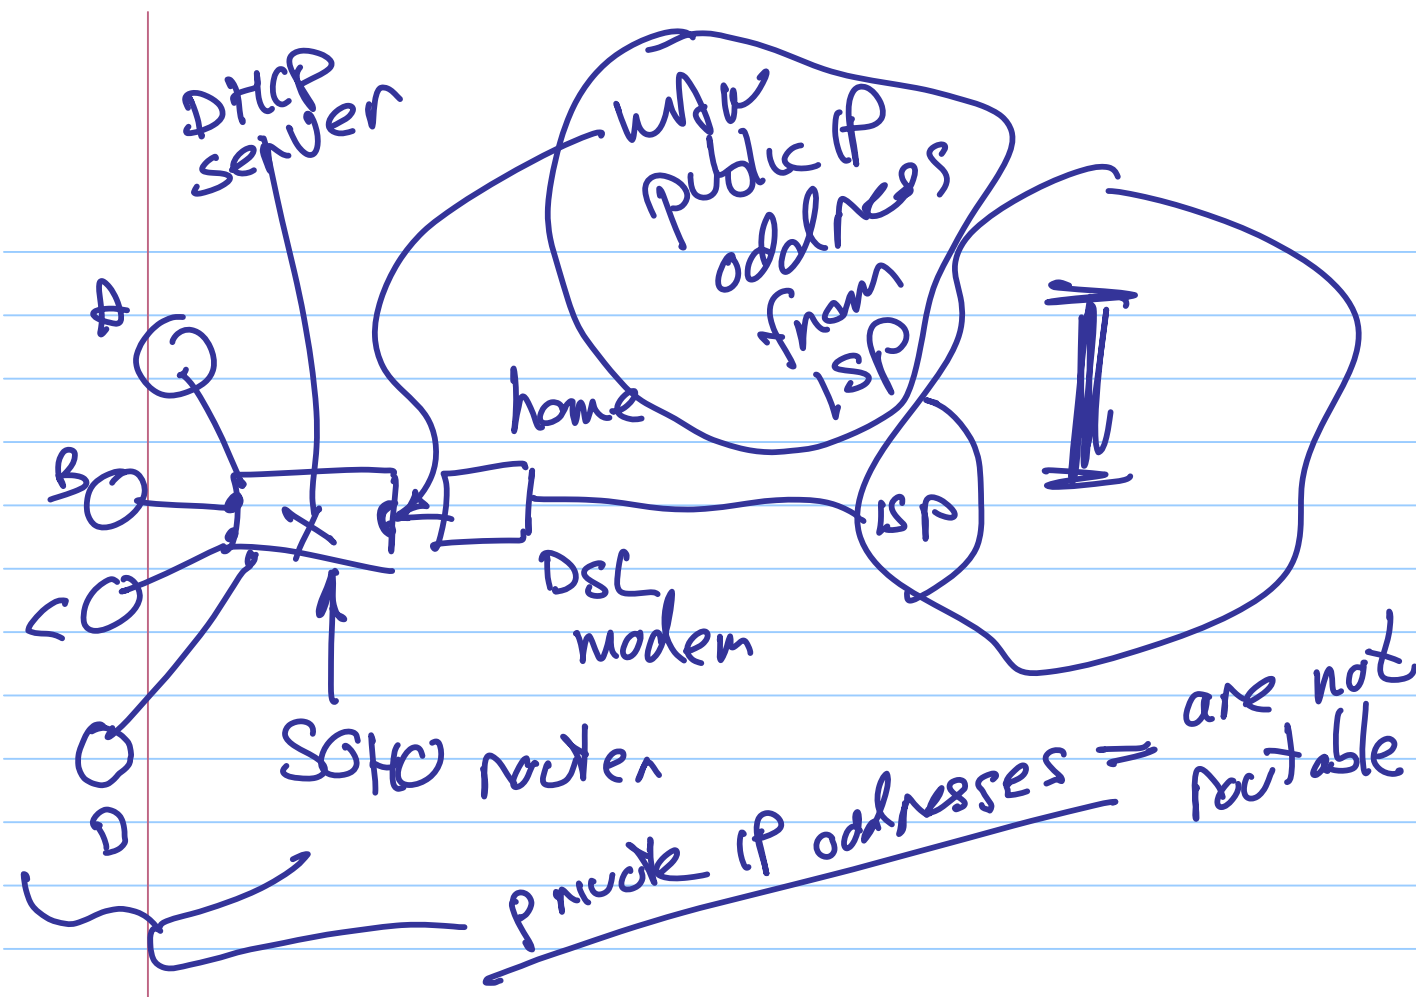 DHCP
server
WAN
public IP
address
from
ISP
A
B
C
D
home
I
ISP
DSL
modem
SOHO router
private IP addresses = are not
routable